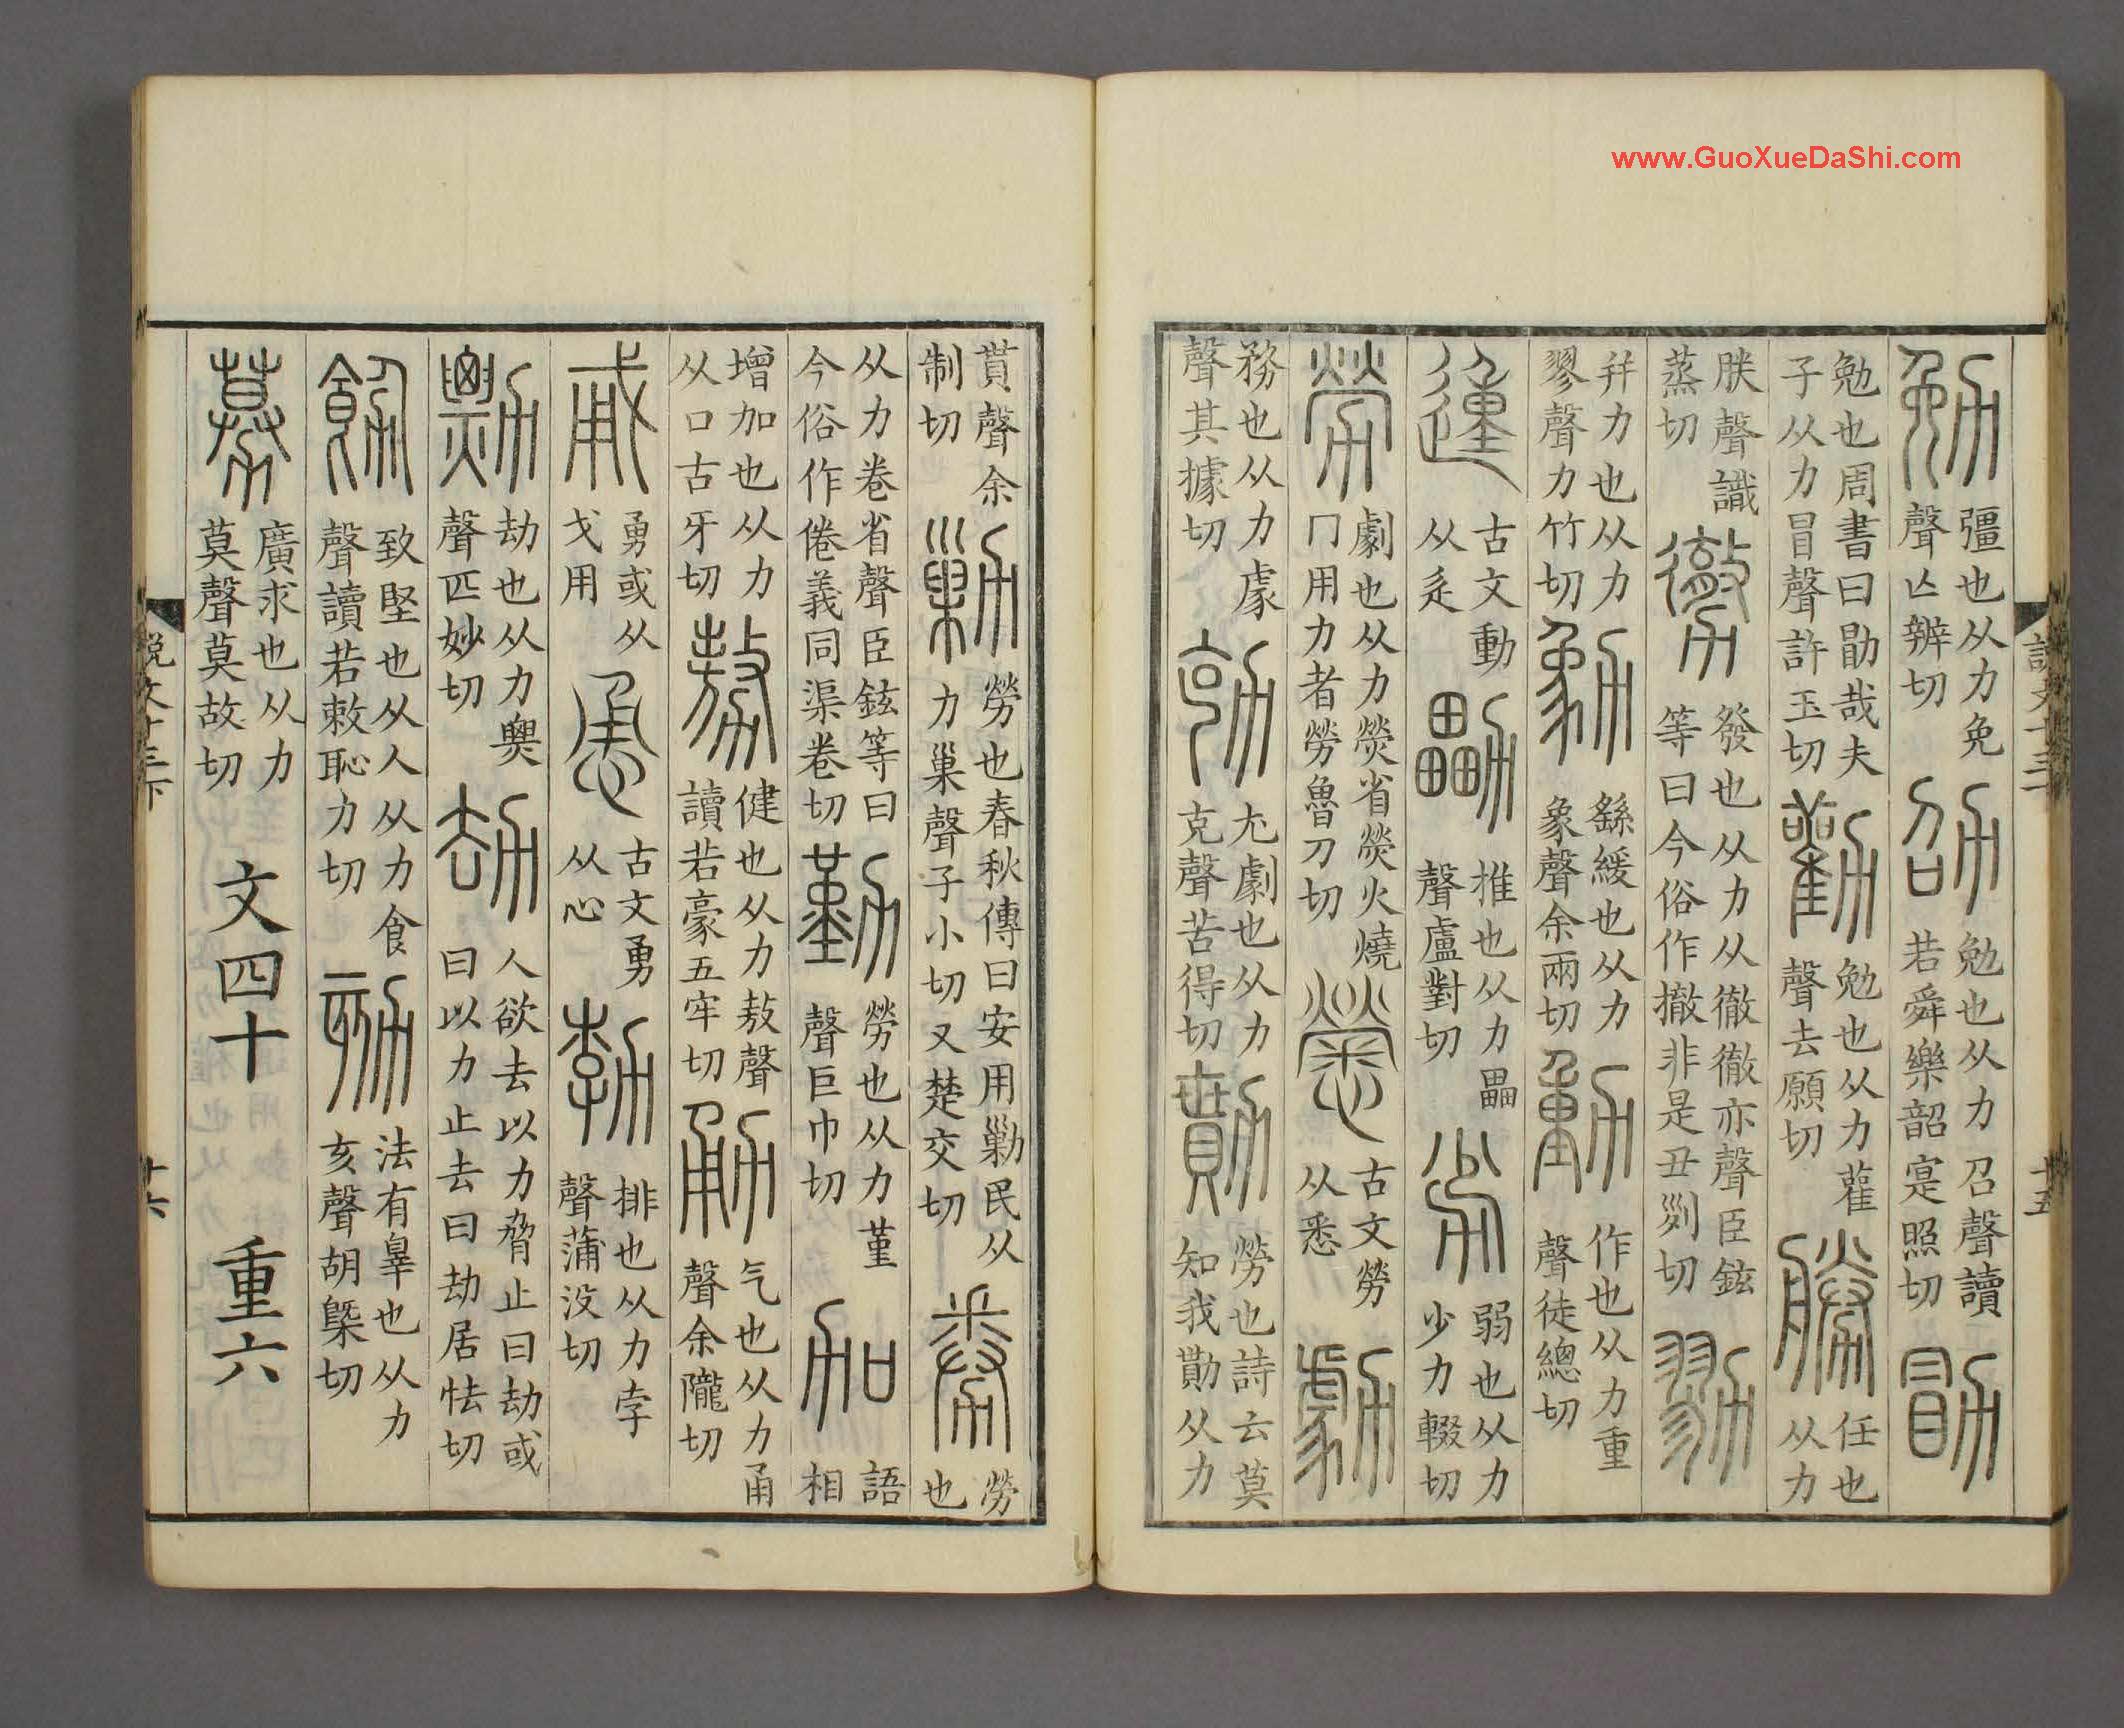 www.GuoXueDaShi.com
説文十三下 十五
勉 彊也从力免聲亾辨切 劭 勉也从力召聲讀若舜樂韶寔照切 勖
勉也周書曰勖哉夫子从力冒聲許玉切 勸 勉也从力雚聲去願切 勝 任也从力
朕聲識蒸切 勶 發也从力从徹徹亦聲臣鉉等曰今俗作撤非是丑列切 勠
并力也从力翏聲力竹切 勨 繇緩也从力象聲余兩切 動 作也从力重聲徒總切
𨔝 古文動从辵 勵 推也从力畾聲盧對切 劣 弱也从力少力輟切
勞 劇也从力熒省熒火燒冂用力者勞魯刀切 𢥒 古文勞从悉 勮
務也从力豦聲其據切 勀 尤劇也从力克聲苦得切 勩 勞也詩云莫知我勩从力
貰聲余制切 勦 勞也春秋傳曰安用勦民从力巢聲子小切又楚交切 券 勞也
从力卷省聲臣鉉等曰今俗作倦義同渠卷切 勤 勞也从力堇聲巨巾切 加 語相
增加也从力从口古牙切 勢 健也从力敖聲讀若豪五牢切 勇 气也从力甬聲余隴切
𢦩 勇或从戈用 恿 古文勇从心 勃 排也从力孛聲蒲没切
勡 劫也从力㶾聲匹妙切 劫 人欲去以力脅止曰劫或曰以力止去曰劫居怯切
飭 致堅也从人从力食聲讀若敕恥力切 劾 法有辠也从力亥聲胡槩切
募 廣求也从力莫聲莫故切 文四十 重六
説文十三下 十六